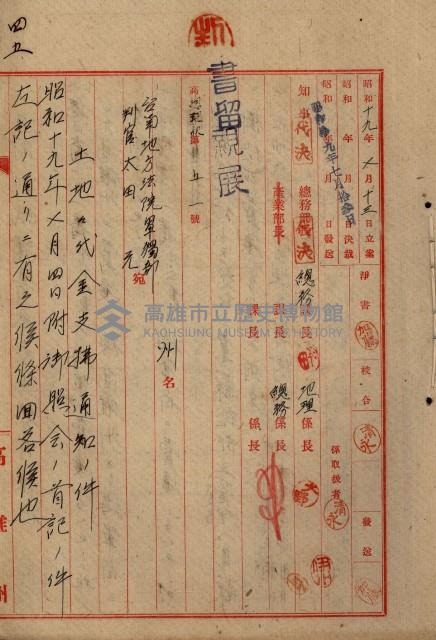 昭和十九年七月十三日立案
昭和 年 月 日決裁
昭和 年 月 日發送
昭和拾九年七月拾參日
淨書
校合
發送
係取扱者
知事代決
總務部長代決
產業部長
總務課長
課長
課長
地理係長
總務係長
係長
書留親展
第五一號
州名
台南地方法院單獨部
判官太田 元宛
土地々代金支拂通知ノ件
昭和十九年七月四日附御照会ノ首記ノ件
左記ノ通リニ有之候條回答候也
四五
高雄州
高雄市立歷史博物館
KAOHSIUNG MUSEUM OF HISTORY